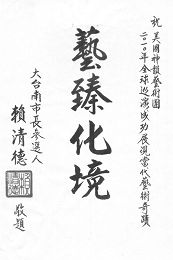 祝 美國神韻藝術團
二〇一〇年全球巡演成功展現當代藝術奇蹟
藝臻化境
大台南市長參選人
賴清德
敬題